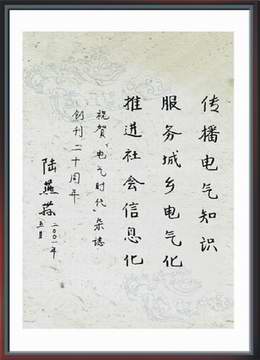 传播电气知识
服务城乡电气化
推进社会信息化
祝贺“电气时代”杂志
创刊二十周年
陆燕荪
二〇〇一年
五月